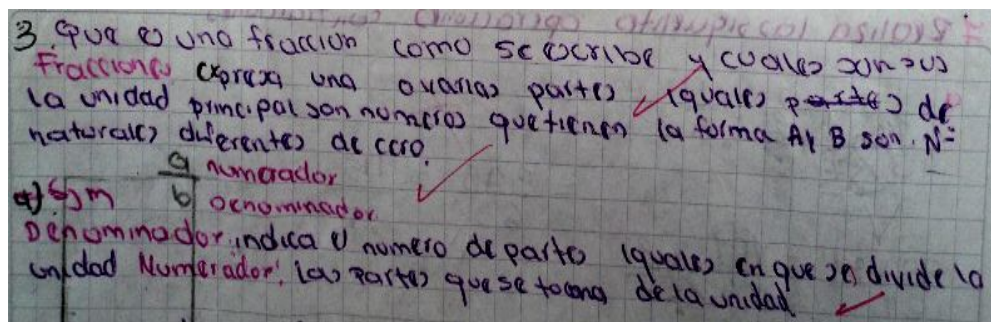 3 Que es una fraccion como se escribe y cuales son sus
Fracciones expresa una ovarias partes iguales partes de
la unidad principal son numeros que tienen la forma A y B son. Nº
naturales diferentes de cero.
a numerador
b Denominador
Denominador indica el numero de partes iguales en que se divide la
unidad Numerador: las Partes que se toma de la unidad